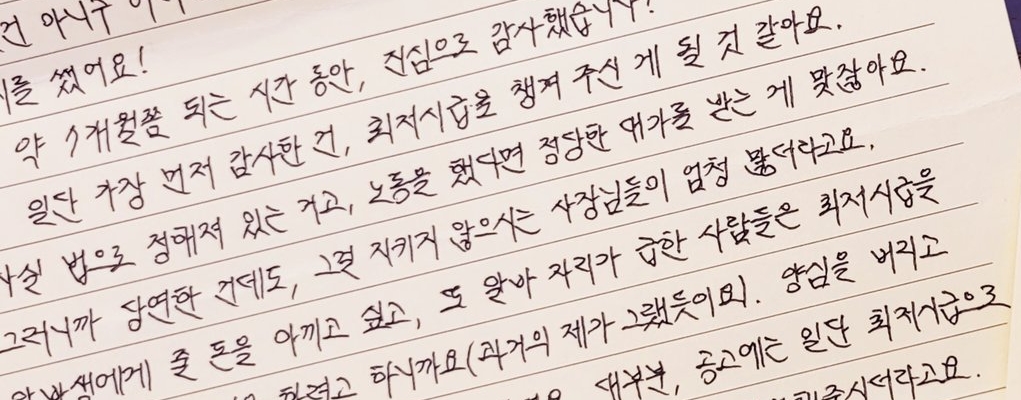 건 아니구
를 썼어요!
약 1개월쯤 되는 시간 동안, 진심으로 감사했습니다!
일단 가장 먼저 감사한 건, 최저시급을 챙겨 주신 게 될 것 같아요.
사실 법으로 정해져 있는 거고, 노동을 했다면 정당한 대가를 받는 게 맞잖아요.
그러니까 당연한 건데도, 그걸 지키지 않으시는 사장님들이 엄청 많더라고요.
알바생에게 줄 돈을 아끼고 싶고, 또 알바 자리가 급한 사람들은 최저시급을
하려고 하니까요(과거의 제가 그랬듯이요). 양심을 버리고
대부분, 공고에는 일단 최저시급으로
주시더라고요.